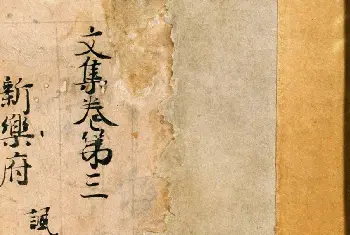 文集卷第三
新樂府
諷